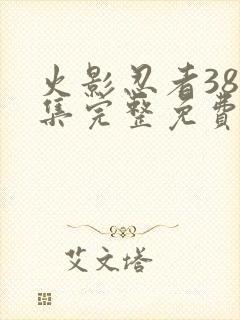 火影忍者38
集完整免费
艾文塔